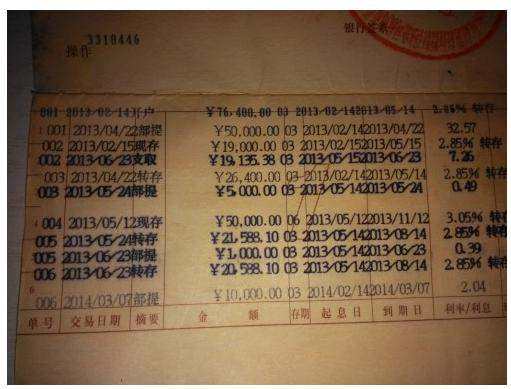 银行签章
3310446
操作
001 2013/02/14开户 ￥76,400.00 03 2013/02/142013/05/14 2.85% 转存
001 2013/04/22部提 ￥50,000.00 03 2013/02/142013/04/22 32.57
002 2013/02/15现存 ￥19,000.00 03 2013/02/152013/05/15 2.85% 转存
002 2013/06/23支取 ￥19,135.38 03 2013/05/152013/06/23 7.26
003 2013/04/22转存 ￥26,400.00 03 2013/02/142013/05/14 2.85% 转存
003 2013/05/24部提 ￥5,000.00 03 2013/05/142013/05/24 0.49
004 2013/05/12现存 ￥50,000.00 06 2013/05/122013/11/12 3.05% 转存
005 2013/05/24转存 ￥21,588.10 03 2013/05/142013/08/14 2.85% 转存
005 2013/06/23部提 ￥1,000.00 03 2013/05/142013/06/23 0.39
006 2013/06/23转存 ￥20,588.10 03 2013/05/142013/08/14 2.85% 转存
6
006 2014/03/07部提 ￥10,000.00 03 2014/02/142014/03/07 2.04
单号 交易日期 摘要 金 额 存期 起息日 到期日 利率/利息